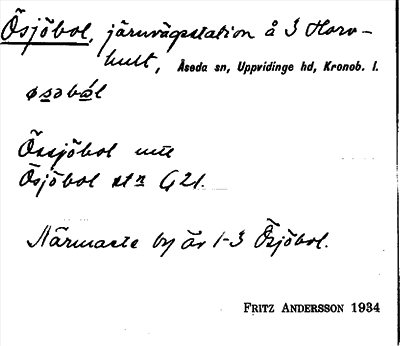 Ösjöbol, järnvägsstation å 3 Horv-
hult, Åseda sn, Uppvidinge hd, Kronob. l.
øsəbål
Össjöbol
Ösjöbol stn G21.
Närmaste by är 1-3 Ösjöbol.
FRITZ ANDERSSON 1934